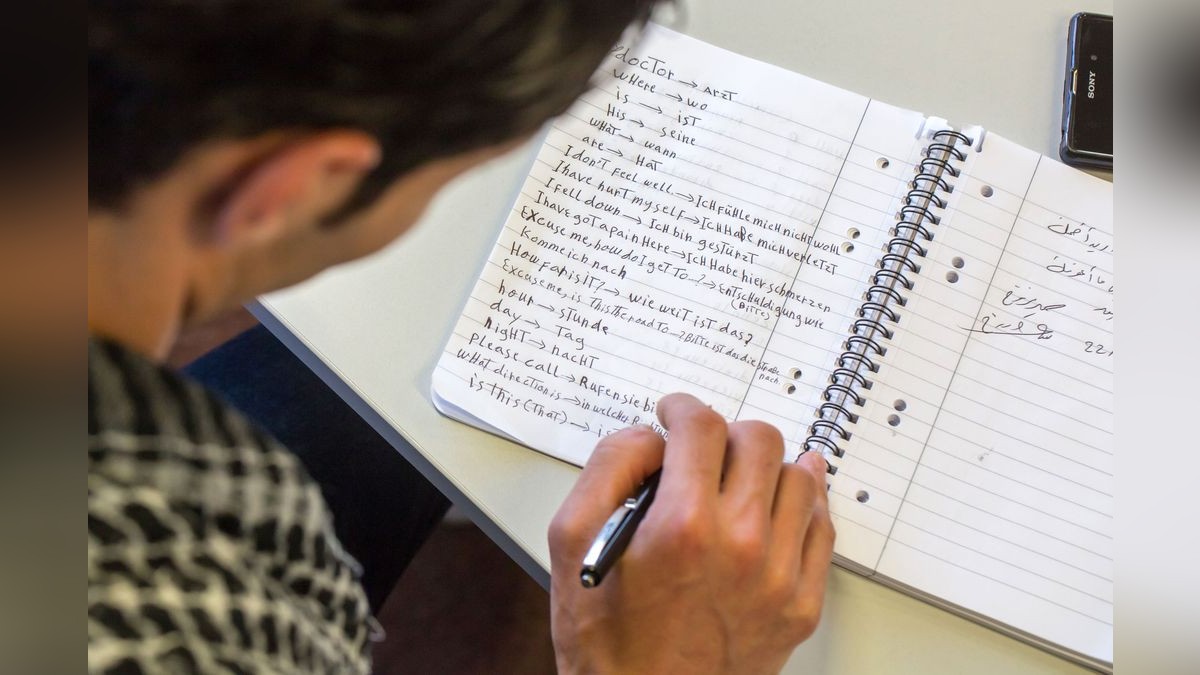 doctor → Arzt
where → wo
is → ist
His → seine
what → wann
are → Hat
I don't feel well → Ich fühle mich nicht wohl
I have hurt myself → Ich Habe mich verletzt
I fell down → Ich bin gestürzt
I have got a pain Here → Ich Habe hier schmerzen
Excuse me, how do I get to ..? → Entschuldigung wie
(Bitte)
Komme ich nach
How far is IT? → wie weit ist das?
Excuse me, is This the road to → Bitte ist das die straße
nach
hour → stunde
day → Tag
night → nacht
please call → Rufen sie
what direction is → in welcher
is this (That) →
SONY